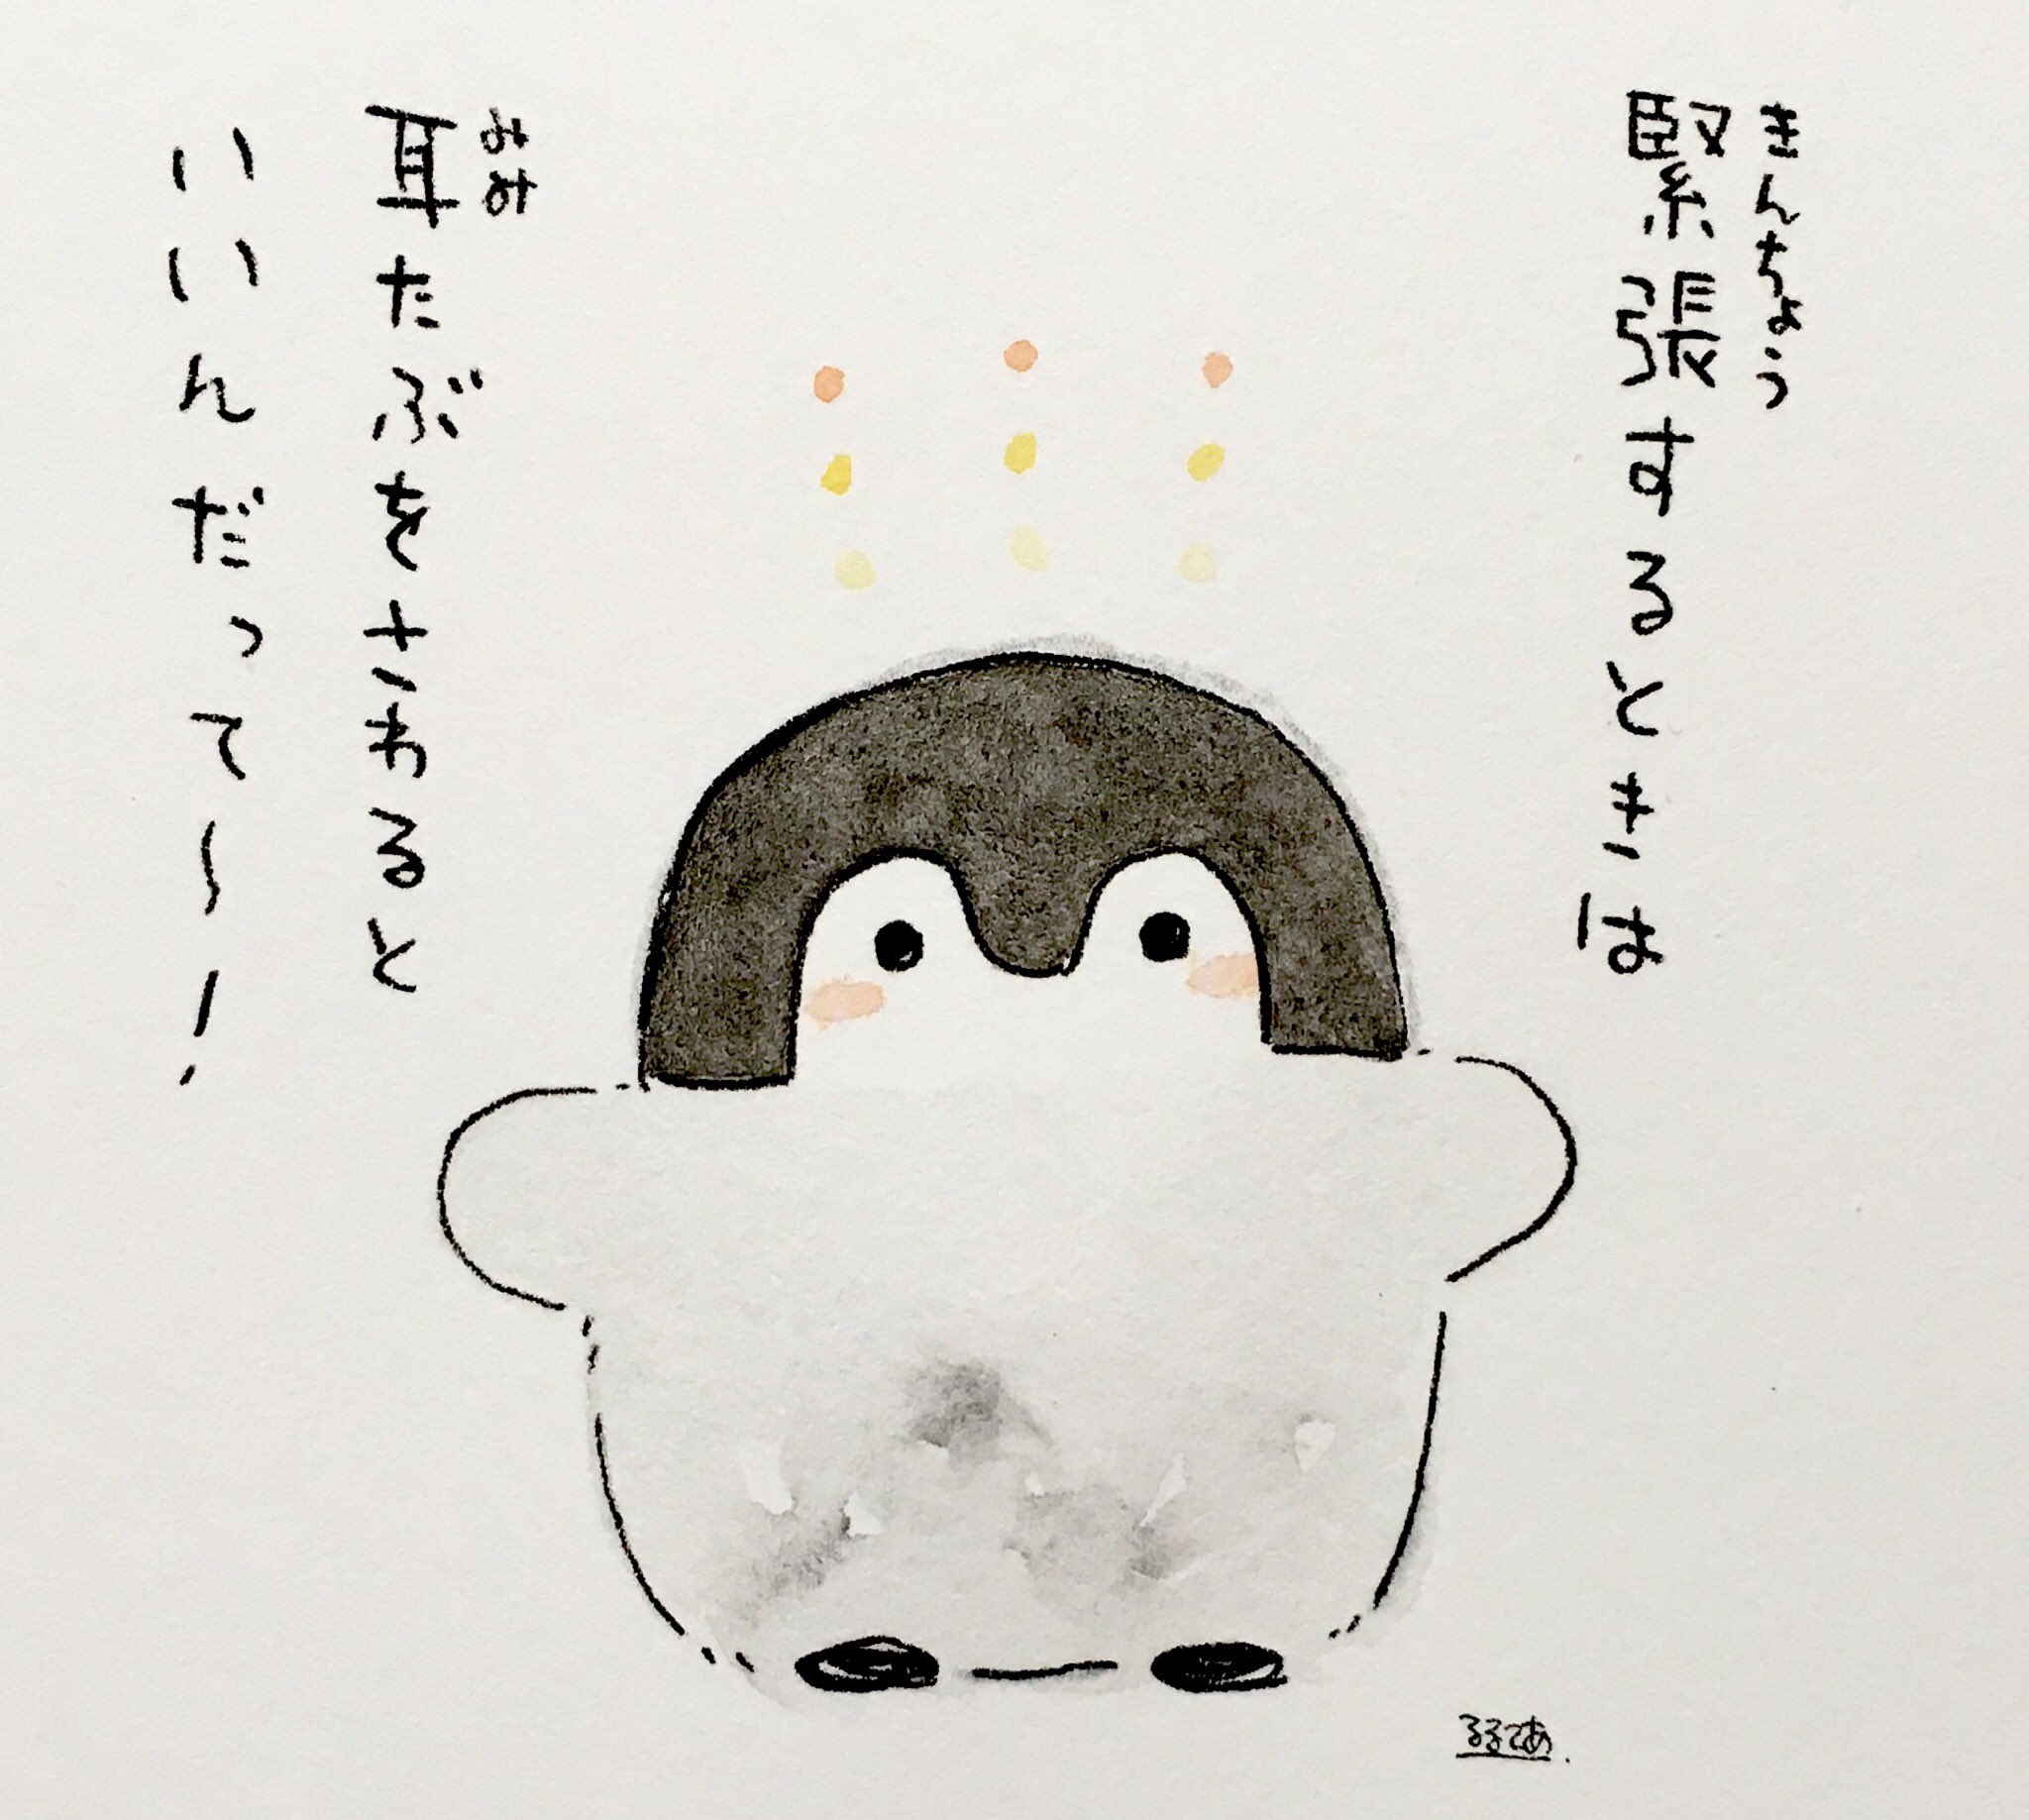 きんちょう
緊張するときは
みみ
耳たぶをさわると
いいんだって〜!
るるてあ.